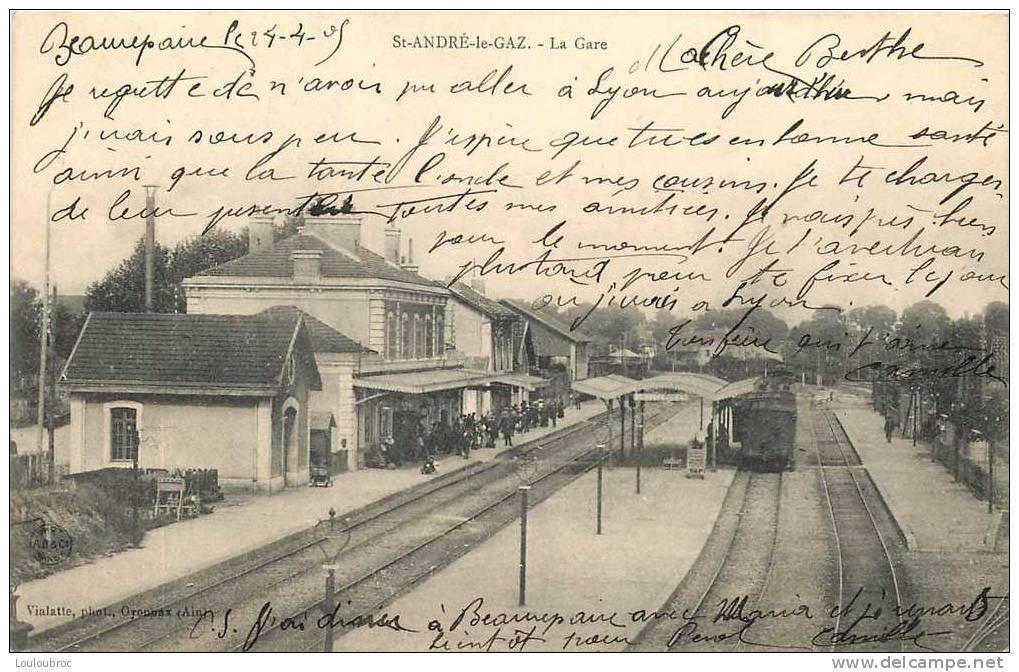 Beaurepaire le 24-4-05
St-ANDRÉ-le-GAZ. - La Gare
Ma Chère Berthe
Je regrette de n'avoir pu aller à Lyon aujourd'hui mais
j'irais sous peu. J'espère que tu es en bonne santé
ainsi que la tante l'oncle et mes cousins. Je te charge
de leur présenter toutes mes amitiés. Je vais très bien
pour le moment. Je t'avertirai
plus tard pour te fixer le jour
où j'irais à Lyon
Ton frère qui t'aime
Camille
Vialatte, phot., Oyonnax (Ain)
P.S. J'ai dîner à Beaurepaire avec Maria et je repars
bientôt pour Camille
Louloubroc
www.delcampe.net